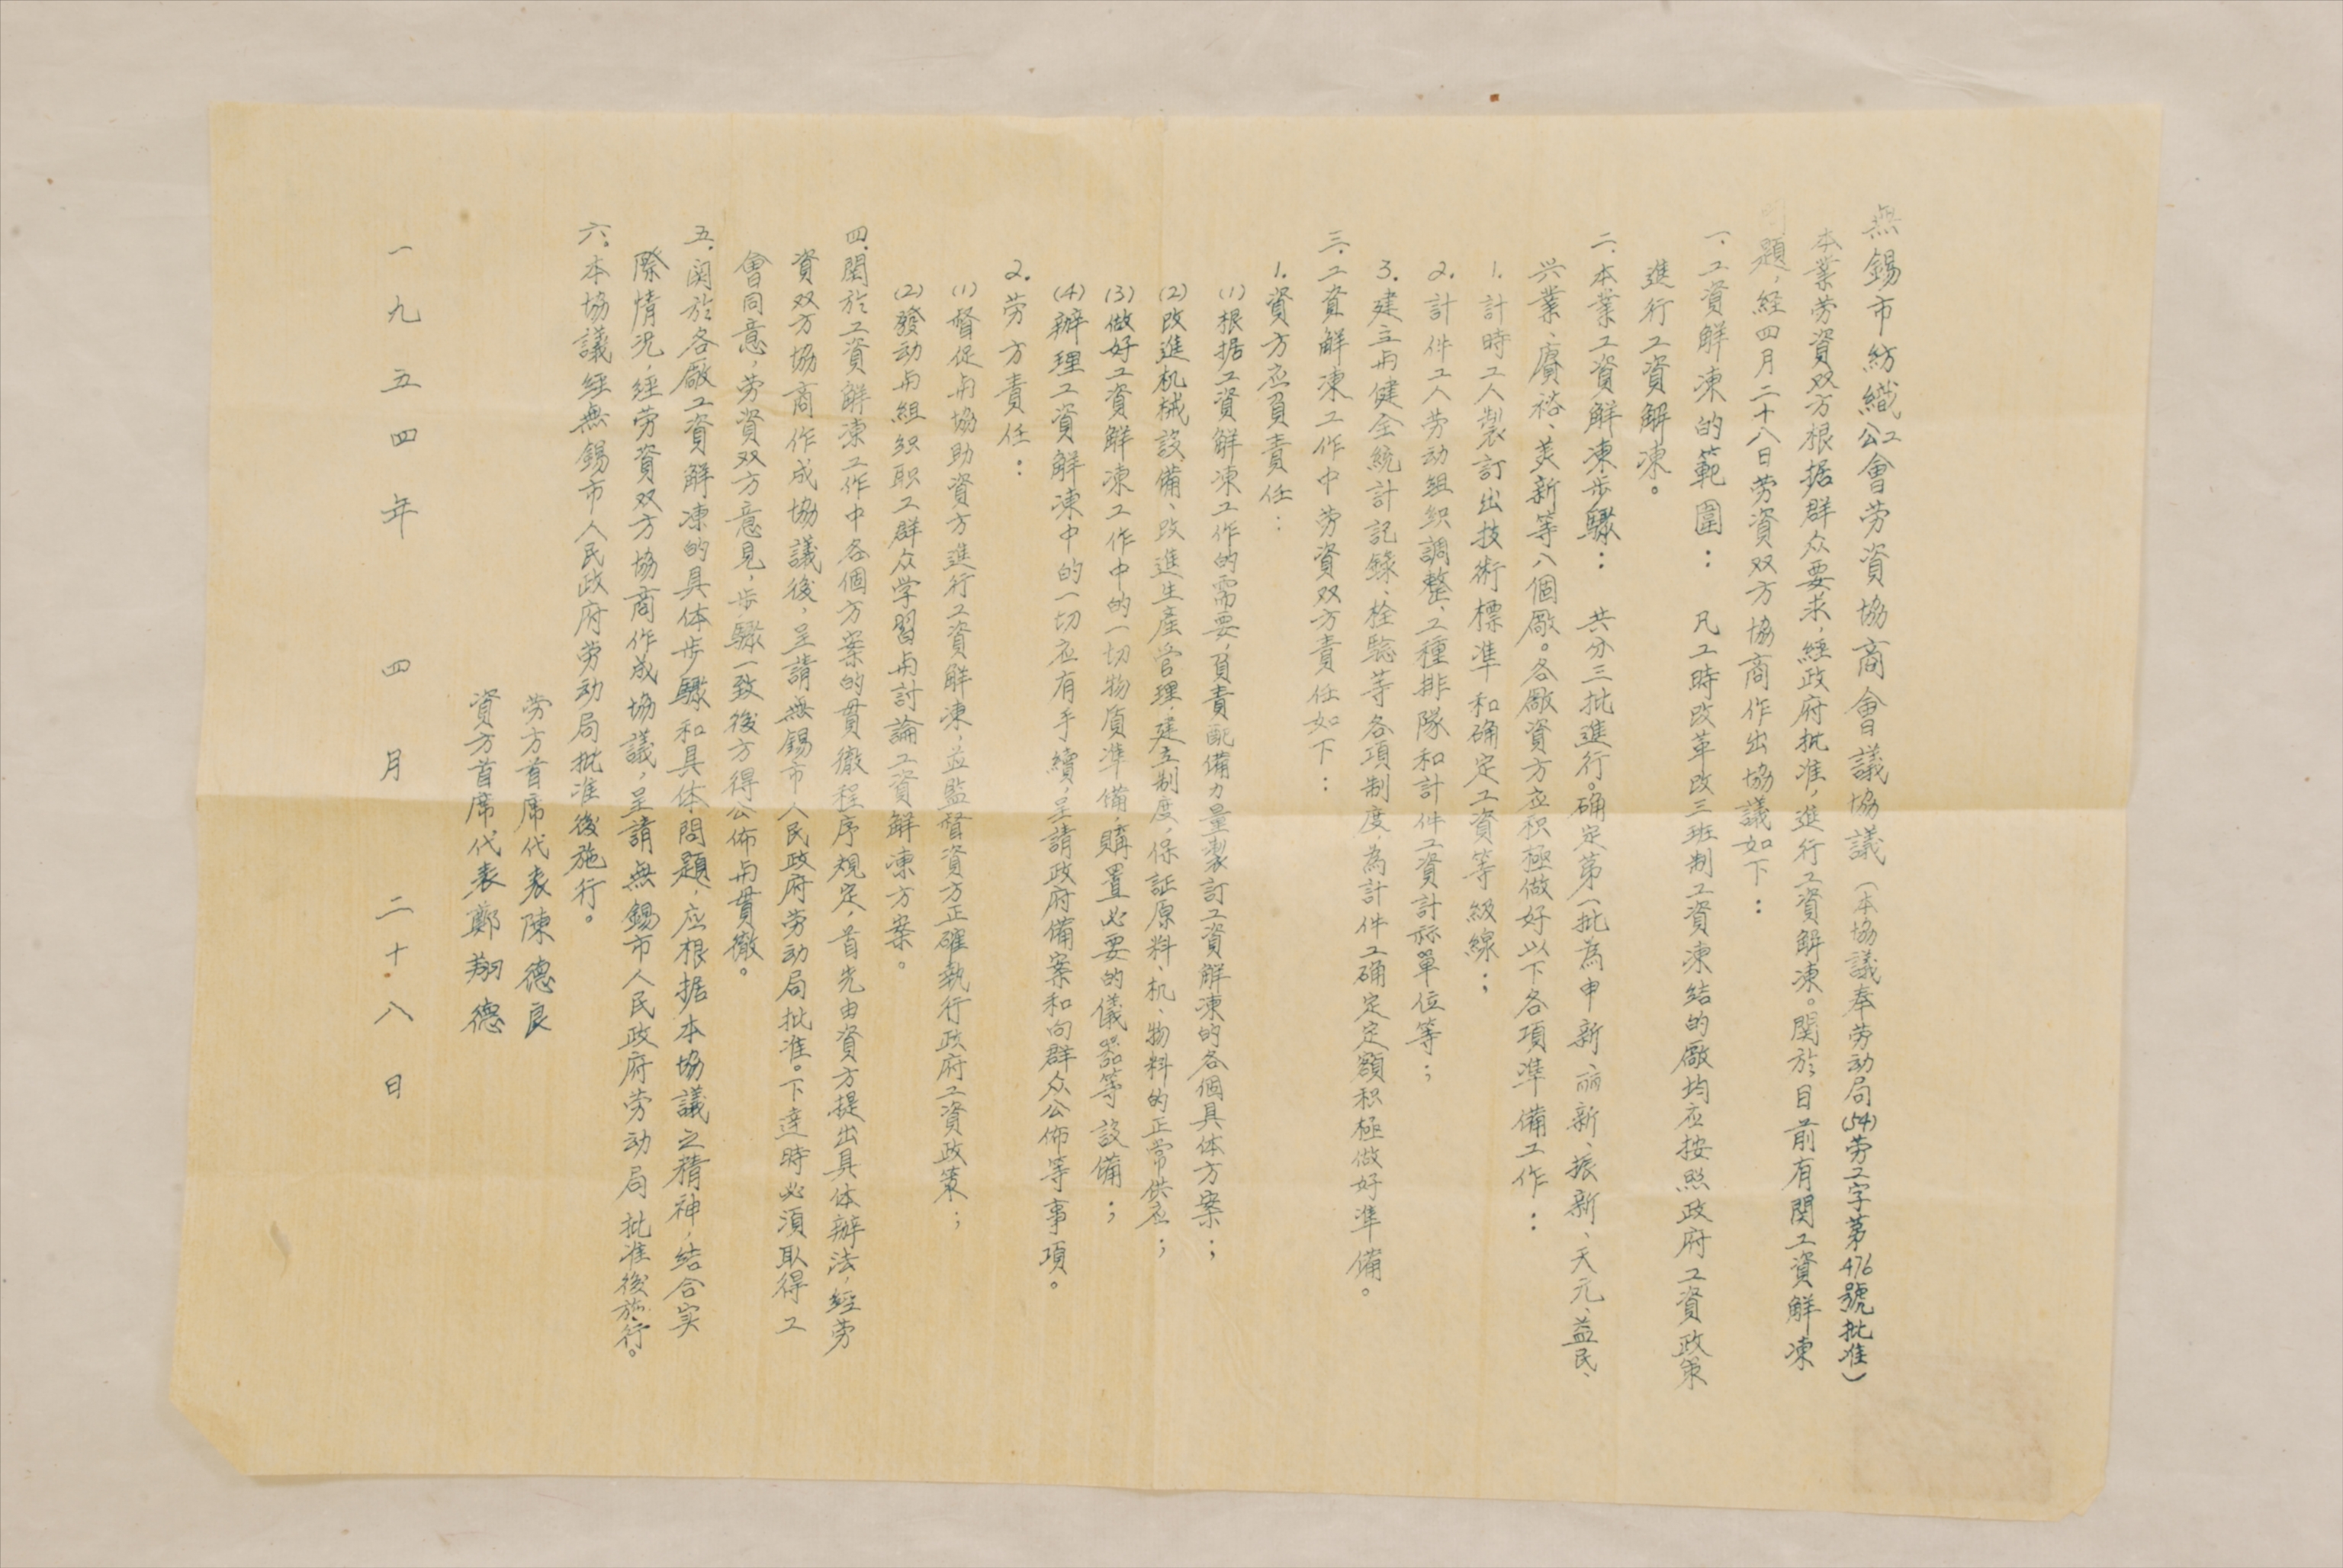 無錫市紡織工公會劳資協商會議協議（本協議奉劳动局(54)劳工字第476號批准）
本業劳資双方根据群众要求，經政府批准，進行工資解凍。関於目前有関工資解凍
問題，経四月二十八日劳資双方協商作出協議如下：
一.工資解凍的範圍： 凡工時改革改三班制工資凍结的廠均应按照政府工資政策
進行工資解凍。
二.本業工資解凍步驟： 共分三批進行。确定第一批為申新、丽新、振新、天元、益民、
兴業、賡裕、美新等八個廠。各廠資方应积極做好以下各項準備工作：
1.計時工人製訂出技術標準和确定工資等級線；
2.計件工人劳动组织調整、工種排隊和計件工資計祘單位等；
3.建立与健全統計記錄、栓騐等各項制度，為計件工确定定額积極做好準備。
三.工資解凍工作中劳資双方責任如下：
1.資方应負責任：
(1)根据工資解凍工作的需要，負責配備力量製訂工資解凍的各個具体方案；
(2)改進机械設備、改進生產管理，建立制度，保証原料、机、物料的正常供应；
(3)做好工資解凍工作中的一切物质準備，購置必要的儀器等設備；
(4)辦理工資解凍中的一切应有手續，呈請政府備案和向群众公佈等事項。
2.劳方責任：
(1)督促与協助資方進行工資解凍，並監督資方正確執行政府工資政策；
(2)發动与组织职工群众学習与討論工資解凍方案。
四.関於工資解凍工作中各個方案的貫徹程序規定，首先由資方提出具体辦法，經劳
資双方協商作成協議後，呈請無錫市人民政府劳动局批准。下達時必須取得工
會同意，劳資双方意見，步驟一致後方得公佈与貫徹。
五.関於各廠工資解凍的具体步驟和具体問題，应根据本協議之精神，結合实
際情況，經劳資双方協商作成協議，呈請無錫市人民政府劳动局批准後施行。
六.本協議經無錫市人民政府劳动局批准後施行。
劳方首席代表陳德良
資方首席代表鄭翔德
一九五四年四月二十八日